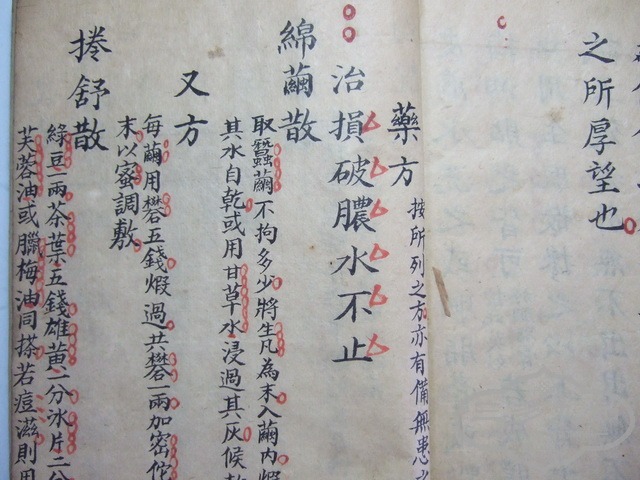 之所厚望也
藥方 按所列之方亦有備無患之
治損破膿水不止
綿繭散
取蠶繭不拘多少將生凡為末入繭內煆
其水自乾或用甘草水浸過其灰候乾
又方
每繭用礬五錢煆過共礬一兩加密佗
末以蜜調敷
捲舒散
綠豆一兩茶葉五錢雄黃二分氷片二分
芙蓉油或臘梅油同搽若痘滋則用